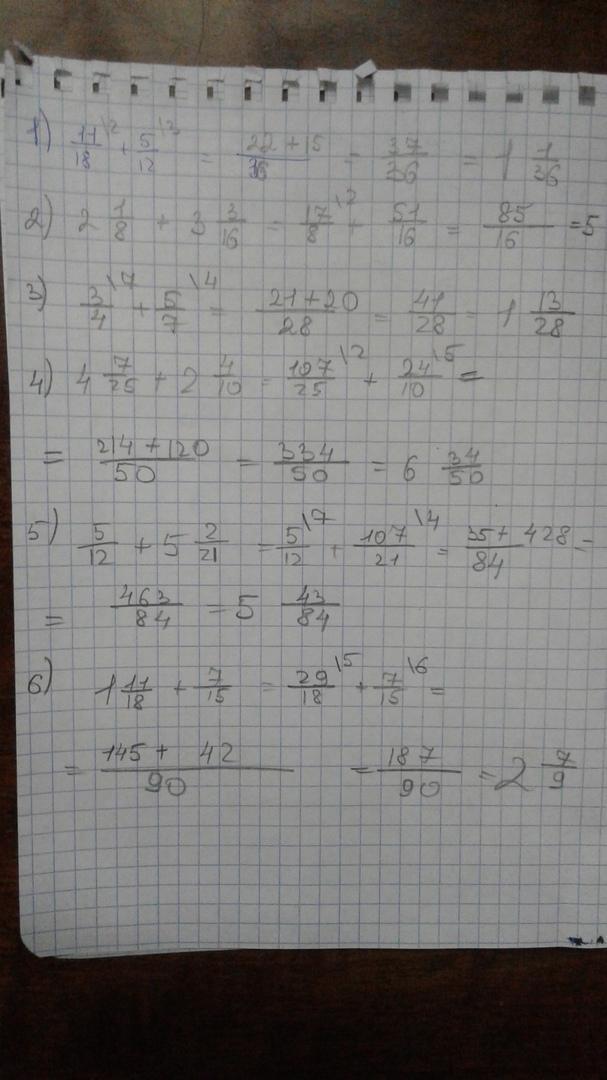 1) 11/18 \2 + 5/12 \3 = 22 + 15/36 = 37/36 = 1 1/36
2) 2 1/8 + 3 3/16 = 17/8 \2 + 51/16 = 85/16 = 5
3) 3/4 \7 + 5/7 \4 = 21 + 20/28 = 41/28 = 1 13/28
4) 4 7/25 + 2 4/10 = 107/25 \2 + 24/10 \5 =
= 214 + 120/50 = 334/50 = 6 34/50
5) 5/12 + 5 2/21 = 5/12 \7 + 107/21 \4 = 35 + 428/84 =
= 463/84 = 5 43/84
6) 1 11/18 + 7/15 = 29/18 \5 + 7/15 \6 =
= 145 + 42/90 = 187/90 = 2 7/9